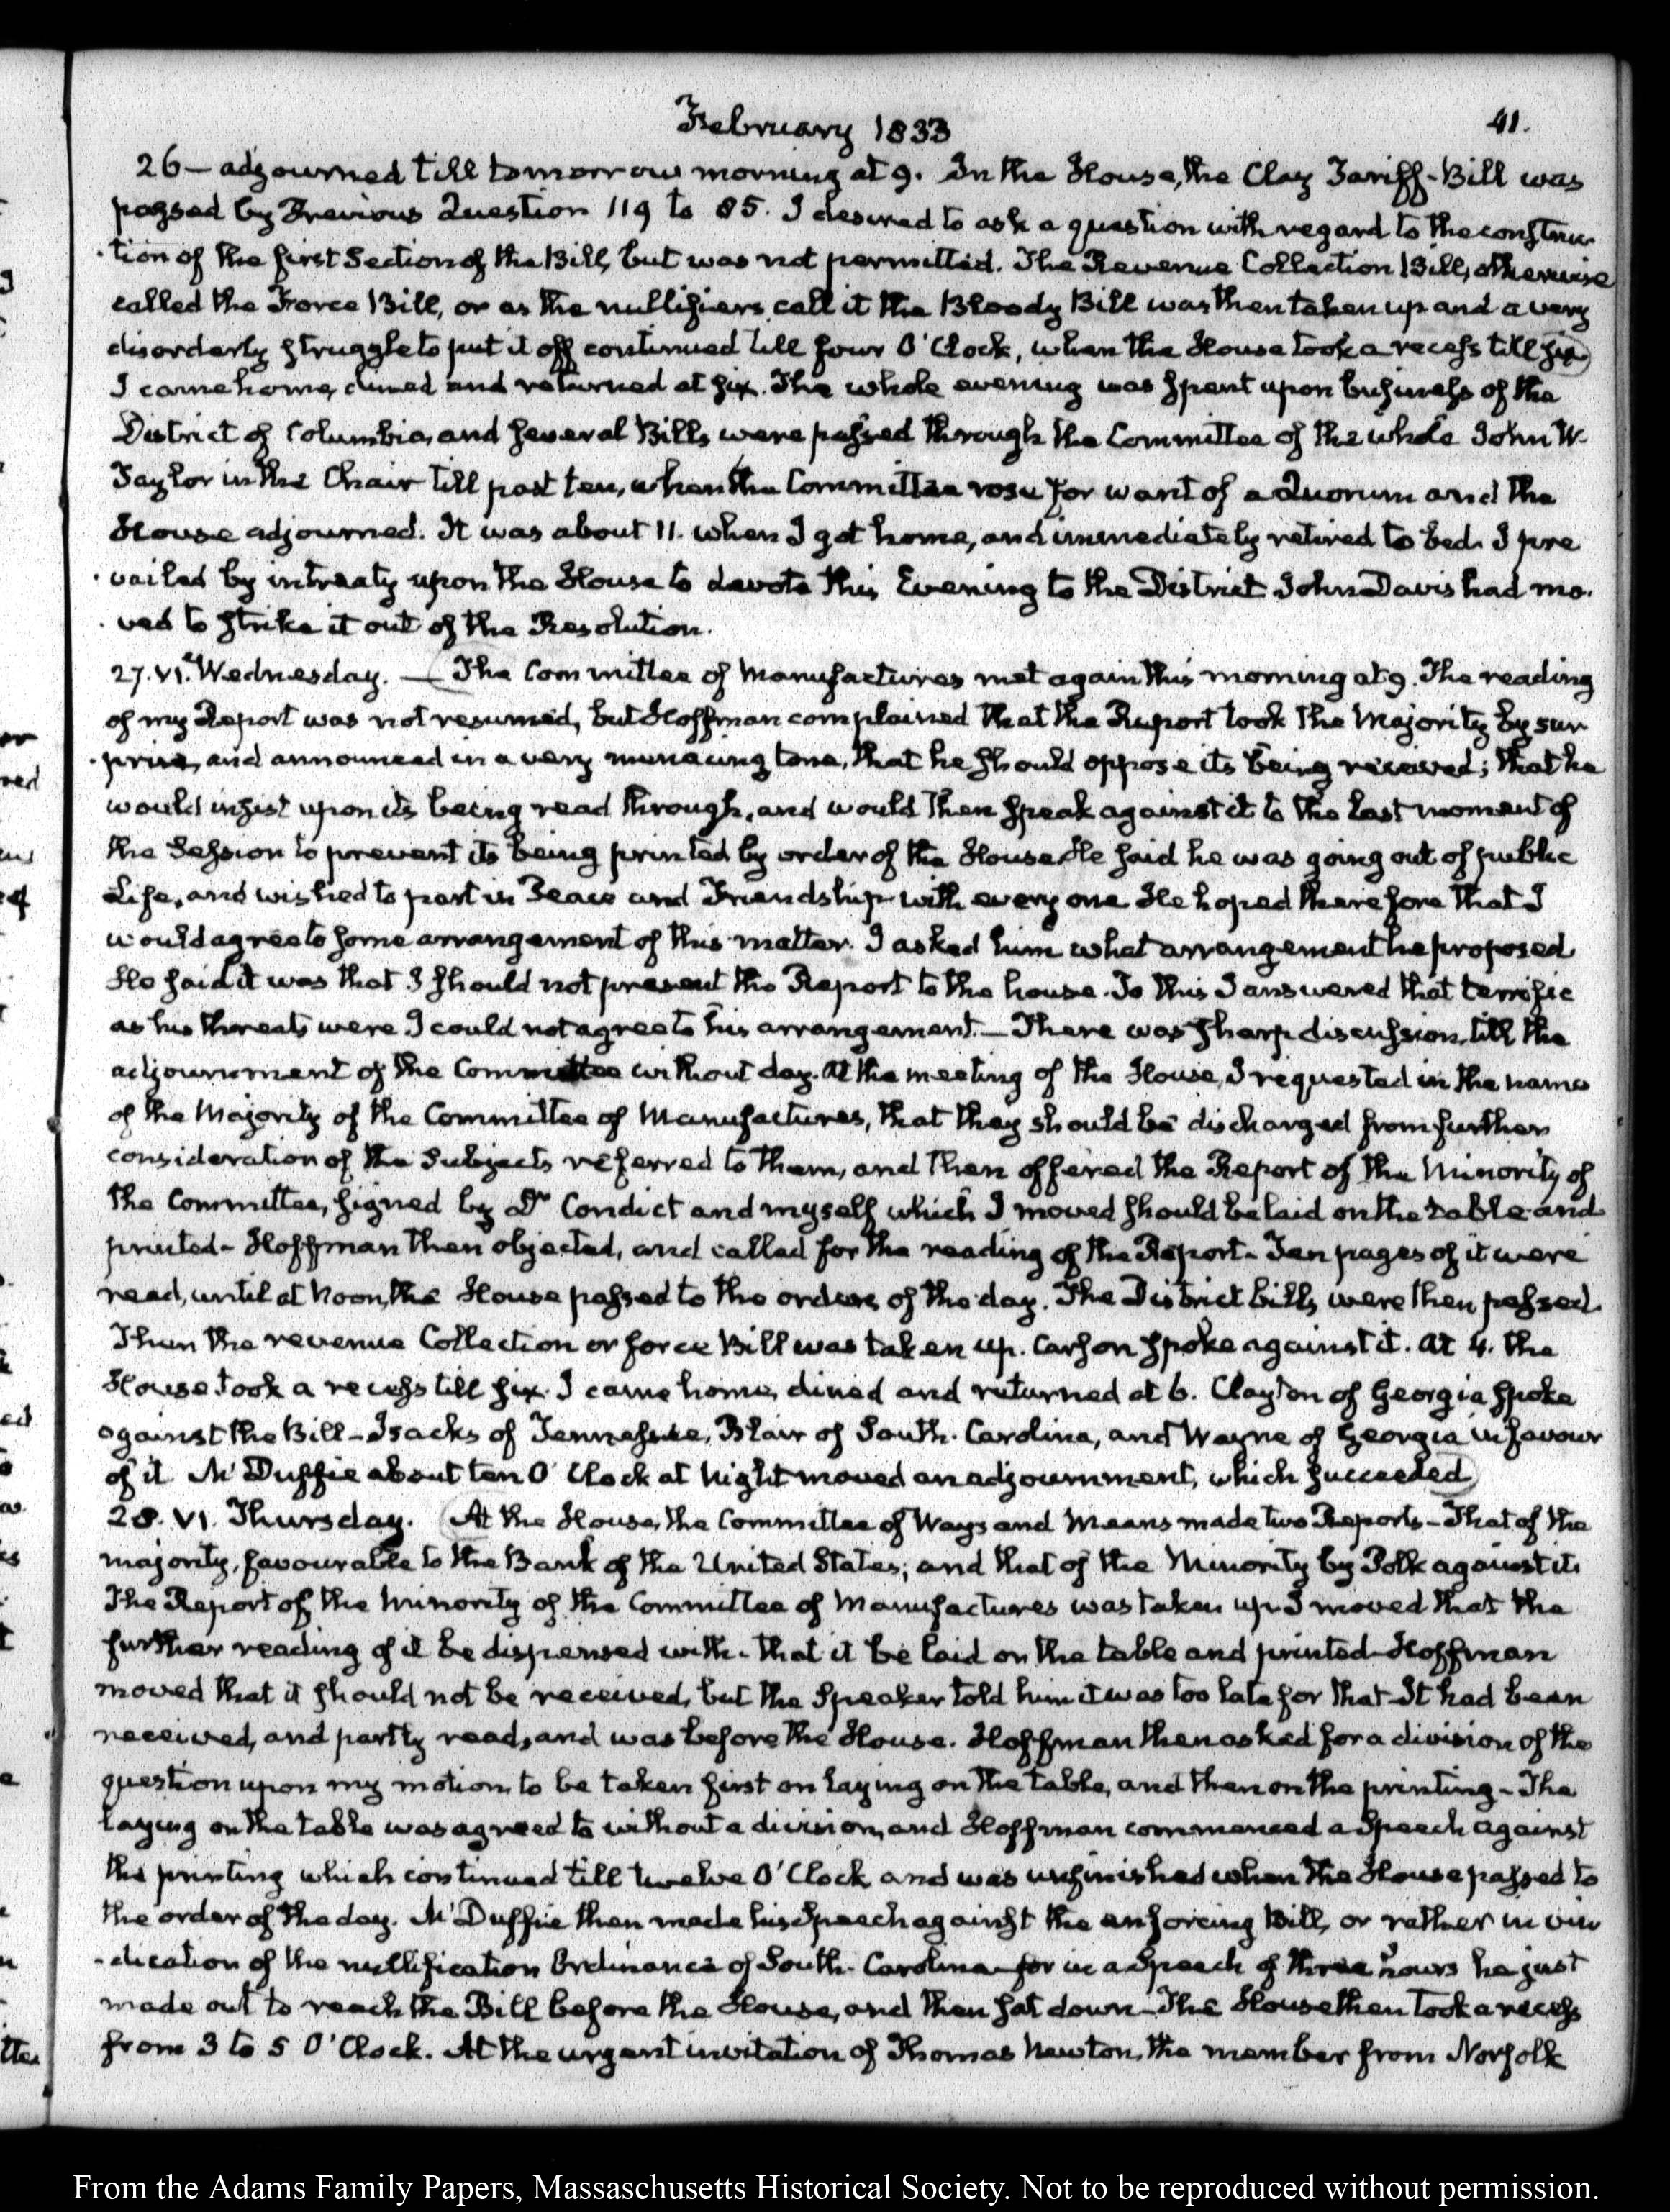 February 1833
41.
26 – adjourned till tomorrow morning at 9. In the House, the Clay Tariff-Bill was
passed by Previous Question 119 to 85. I desired to ask a question with regard to the construc-
-tion of the first Section of the Bill, but was not permitted. The Revenue Collection Bill, otherwise
called the Force Bill, or as the nullifiers call it the Bloody Bill was then taken up and a very
disorderly struggle to put it off continued till four O'Clock, when the House took a recess till six
I came home, dined and returned at six. The whole evening was spent upon business of the
District of Columbia, and several Bills were passed through the Committee of the whole John W.
Taylor in the Chair till past ten, when the Committee rose for want of a Quorum and the
House adjourned. It was about 11. when I got home, and immediately retired to bed. I pre
-vailed by intreaty upon the House to devote this Evening to the District John Davis had mo-
-ved to strike it out of the Resolution.
27. VI. Wednesday. — The Committee of Manufactures met again this morning at 9. The reading
of my Report was not resumed, but Hoffman complained that the Report took the Majority by sur
-prise, and announced in a very menacing tone, that he should oppose its being received; that he
would insist upon its being read through, and would then speak against it to the last moment of
the Session to prevent its being printed by order of the House. He said he was going out of public
Life, and wished to part in Peace and Friendship with every one He hoped therefore that I
would agree to some arrangement of this matter. I asked him what arrangement he proposed
He said it was that I should not present the Report to the house. To this I answered that terrific
as his threats were I could not agree to his arrangement. — There was sharp discussion, till the
adjournment of the Committee without day. At the meeting of the House, I requested in the name
of the Majority of the Committee of Manufactures, that they should be discharged from further
consideration of the Subjects referred to them, and then offered the Report of the Minority of
the Committee, signed by Dr Condict and myself which I moved should be laid on the table and
printed – Hoffman then objected, and called for the reading of the Report – Ten pages of it were
read, until at Noon, the House passed to the orders of the day. The District bills were then passed.
Then the revenue Collection or force Bill was taken up. Carson spoke against it. At 4. the
House took a recess till six. I came home, dined and returned at 6. Clayton of Georgia spoke
against the Bill – Isacks of Tennessee, Blair of South-Carolina, and Wayne of Georgia in favour
of it McDuffie about ten O'Clock at Night moved an adjournment, which succeeded
28. VI. Thursday. At the House, the Committee of Ways and Means made two Reports – That of the
majority, favourable to the Bank of the United States; and that of the Minority by Polk against it.
The Report of the Minority of the Committee of Manufactures was taken up. I moved that the
further reading of it be dispensed with – that it be laid on the table and printed – Hoffman
moved that it should not be received, but the Speaker told him it was too late for that – It had been
received, and partly read, and was before the House. Hoffman then asked for a division of the
question upon my motion, to be taken first on laying on the table, and then on the printing – The
laying on the table was agreed to without a division, and Hoffman commenced a Speech against
the printing which continued till twelve O'Clock and was unfinished when the House passed to
the order of the day. McDuffie then made his Speech against the enforcing Bill, or rather in vin
-dication of the nullification Ordinance of South-Carolina for in a Speech of three hours he just
made out to reach the Bill before the House, and then sat down – The House then took a recess
from 3 to 5 O'Clock. At the urgent invitation of Thomas Newton, the member from Norfolk
From the Adams Family Papers, Massachusetts Historical Society. Not to be reproduced without permission.